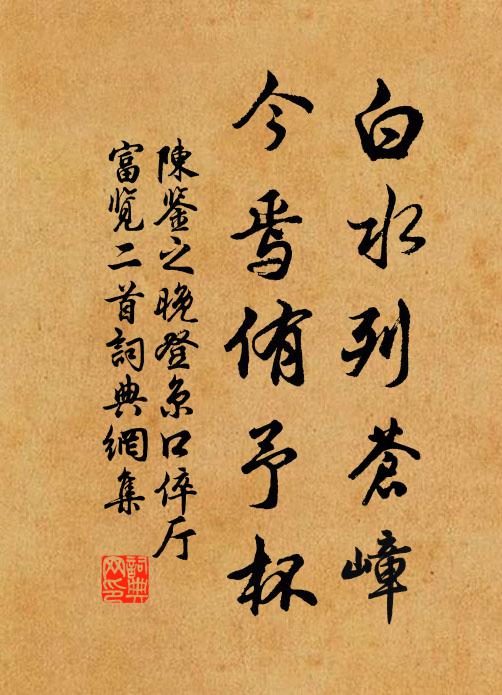 白水列蒼嶂
今焉侑予杯
陳鉴之晚登京口倅厅
富览二首詞典網集
詞典网印